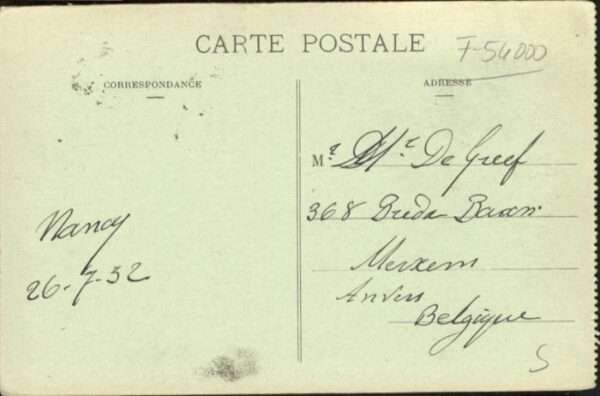 CARTE POSTALE
F-54000
CORRESPONDANCE
ADRESSE
Mr. De Greef
368 Breda Baan
Nancy
26-7-32
Merxem
Anvers
Belgique
S